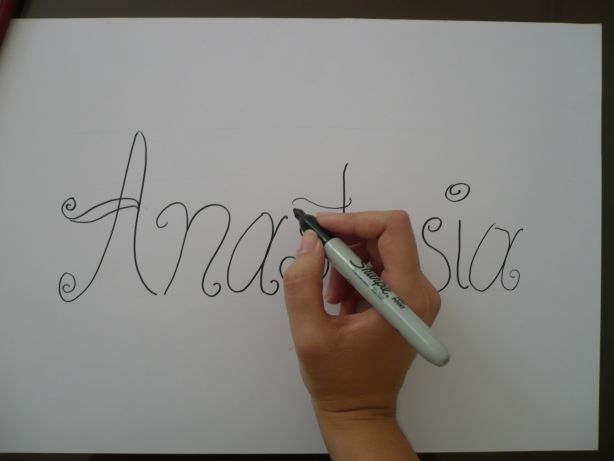 Anastasia
Sharpie